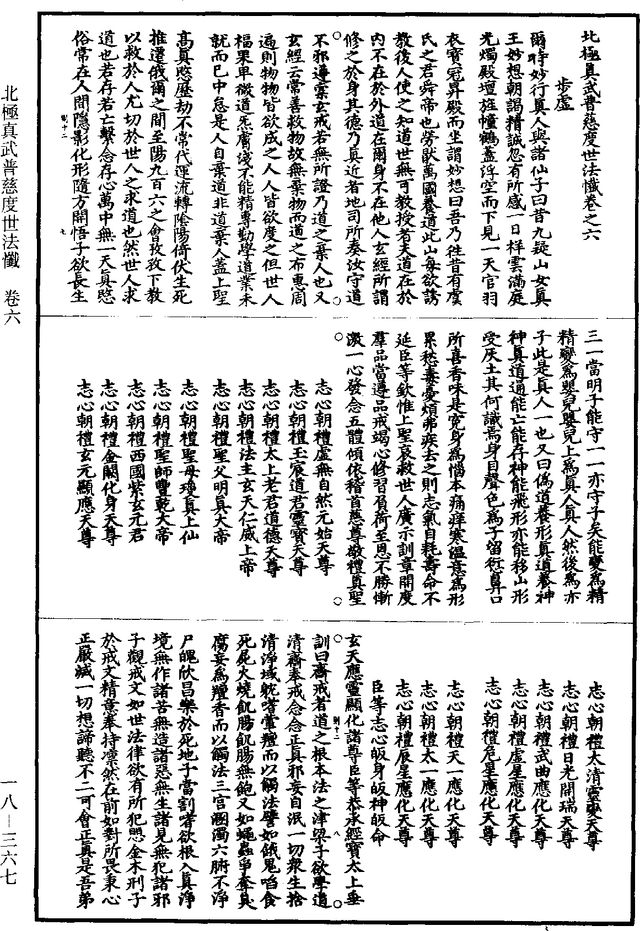 北極真武普慈度世法懺卷之六
步虛
爾時妙行真人與諸仙子曰昔九疑山女真
王妙想朝謁精誠忽有所感一日祥雲滿庭
光燭殿壇旌幢鶴蓋浮空而下見一天官羽
衣寶冠昇殿而坐謂妙想曰吾乃往昔有虞
氏之君舜帝也勞猒萬國養道此山每欲誘
教後人使之知道世無可教授者夫道在於
內不在於外道在爾身不在他人玄經所謂
修之於身其德乃真近者地司所奏汝守道
不邪遵稟玄戒若無所證乃道之棄人也又
玄經云常善救物故無棄物而道之布惠周
遍則物物皆欲成之人人皆欲度之但世人
福果單微道炁膚淺不能精專勤學道業未
就而已中怠是人自棄道非道棄人蓋上聖
高真愍歷劫不常代運流轉陰陽倚伏生死
推遷俄爾之間至陽九百六之會孜孜下教
以救於人尤切於世人之求道也然世人求
道也若存若亡繫念存心萬中無一天真愍
俗常在人間隱影化形隨方開悟子欲長生
三一當明子能守一一亦守子矣能變為精
精變為嬰兒嬰兒上為真人真人然後為赤
子此是真人一也又曰偽道養形真道養神
神真道通能亡能存神能飛形亦能移山形
受灰土其何識焉身目聲色為子留愆鼻口
所喜香味是冤身為惱本痛痒寒溫意為形
累愁毒憂煩弗疾去之則志氣自耗壽命不
延臣等欽惟上聖哀救世人廣示訓章開度
羣品當遵品戒竭心修習負荷至恩不勝慚
激一心發念五體傾依稽首慈尊敬禮真聖
志心朝禮虛無自然元始天尊
志心朝禮玉宸道君靈寶天尊
志心朝禮太上老君道德天尊
志心朝禮法主玄天仁威上帝
志心朝禮聖父明真大帝
志心朝禮聖母瓊真上仙
志心朝禮聖師豐乾大帝
志心朝禮西國紫玄元君
志心朝禮金闕化身天尊
志心朝禮玄元顯應天尊
志心朝禮太清靈變天尊
志心朝禮日光開瑞天尊
志心朝禮武曲應化天尊
志心朝禮虛星應化天尊
志心朝禮危星應化天尊
志心朝禮天一應化天尊
志心朝禮太一應化天尊
志心朝禮辰星應化天尊
臣等志心皈身皈神皈命
玄天應靈顯化諸尊臣等恭承經寶太上垂
訓曰齋戒者道之根本法之津梁子欲學道
清齋奉戒念念正真邪妄自泯一切眾生捨
清淨域躭嗜葷羶而以觸法譬如餓鬼啗食
死屍火燒飢腸飢腸無飽又如蠅蟲爭奪臭
腐妄為羶香而以觸法三官溷濁六腑不淨
尸魄欣昌樂於死地子當割嗜欲根入真淨
境無作諸苦無造諸惡無生諸見無犯諸邪
子觀戒文如世法律欲有所犯愳金木刑子
於戒文精意奉持凛然在前如對所畏秉心
正嚴緘一切想諦聽不二可會正真是吾弟
北極真武普慈度世法懺 卷六
一八—三六七